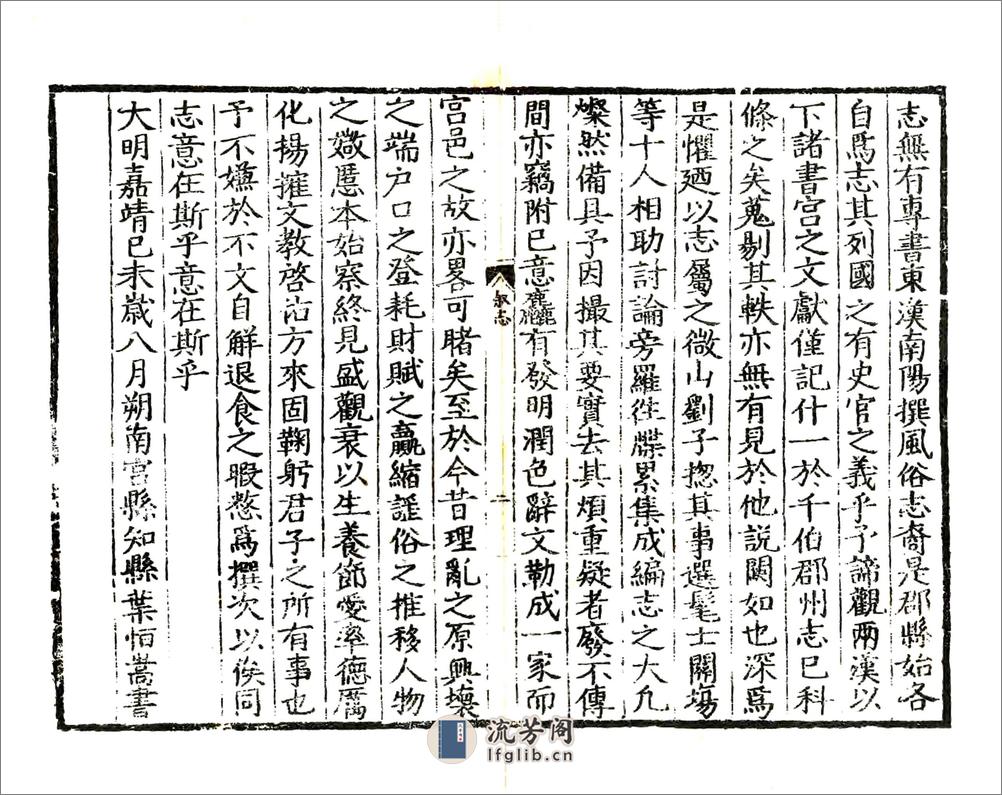 志無有專書東漢南陽撰風俗志裔是郡縣始各
自爲志其列國之有史官之義乎予諦觀兩漢以
下諸書宫之文獻僅記什一於千伯郡州志已科
條之矣蒐剔其軼亦無有見於他説闕如也深爲
是懼廼以志屬之微山劉子揔其事選髦士關塲
等十人相助討論旁羅徃牒累集成編志之大凡
燦然備具予因撮其要實去其煩重疑者廢不傳
間亦竊附已意麤有發明潤色辭文勒成一家而
宫邑之故亦畧可睹矣至於今昔理亂之原興壞
之端户口之登耗財賦之羸縮謡俗之推移人物
之媺慝本始察終見盛觀衰以生養節愛率德厲
化揚搉文教啓沾方來固鞠躬君子之所有事也
予不嫌於不文自解退食之暇愁爲撰次以俟同
志意在斯乎意在斯乎
大明嘉靖已未歳八月朔南宫縣知縣葉恒嵩書
叙志
二
流芳阁
lfglib.cn